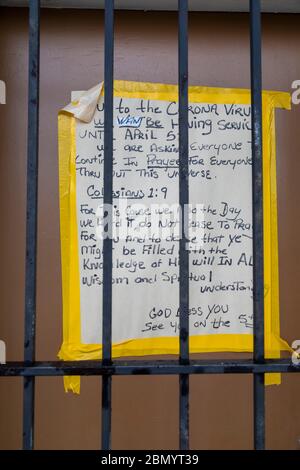 to the Corona Viru
We won't Be Having Servic
Until April 5th
We are Asking Everyone T
Continue In Prayer For Everyone
Thru Out This Universe.
Colossians 1:9
For this Cause we the Day
we it, do Not Cease To Pra
For you And to desire that ye
Might be Filled with the
Knowledge of His will IN AL
Wisdom and Spiritual
understand
GOD Bless YOU
See You on the 5th
alamy
Image ID: 2BMYT39
www.alamy.com